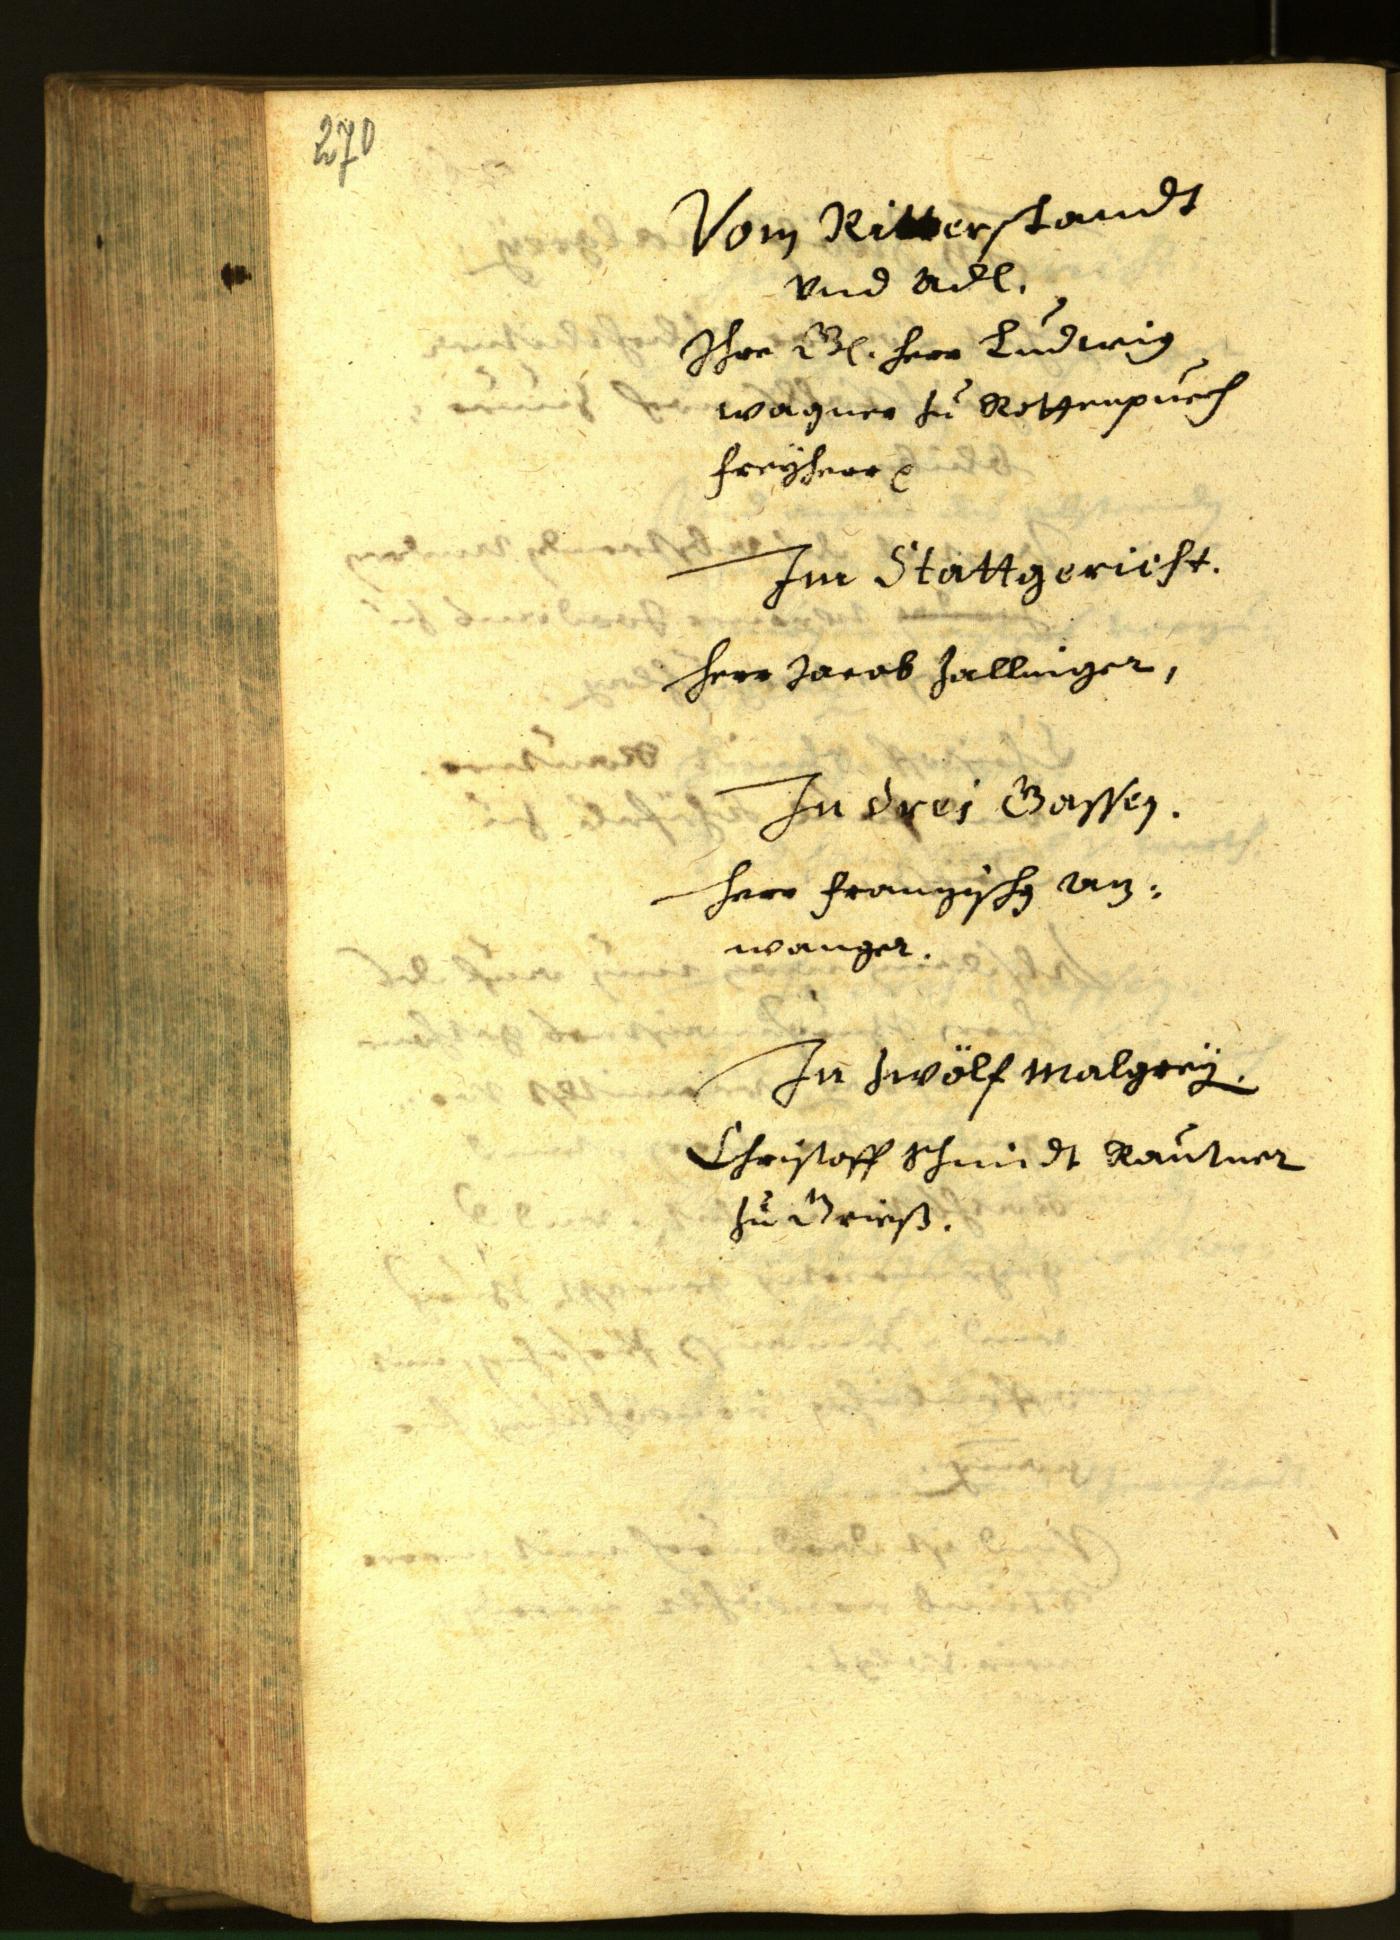 270
Vom Ritterstandt
vnd Adl.
Ihre Gl. herr Ludwig
wagner zu Rottenpuech
freyherr
Im Stattgericht.
herr Jacob Zallinger,
In drei Gassen.
herr Franzisch An:
wanger.
In zwölf Malgreÿ.
Christoff Schmidt Rautner
zu Grieß.